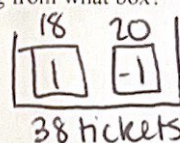 from what box?
18 20
1 -1
38 tickets